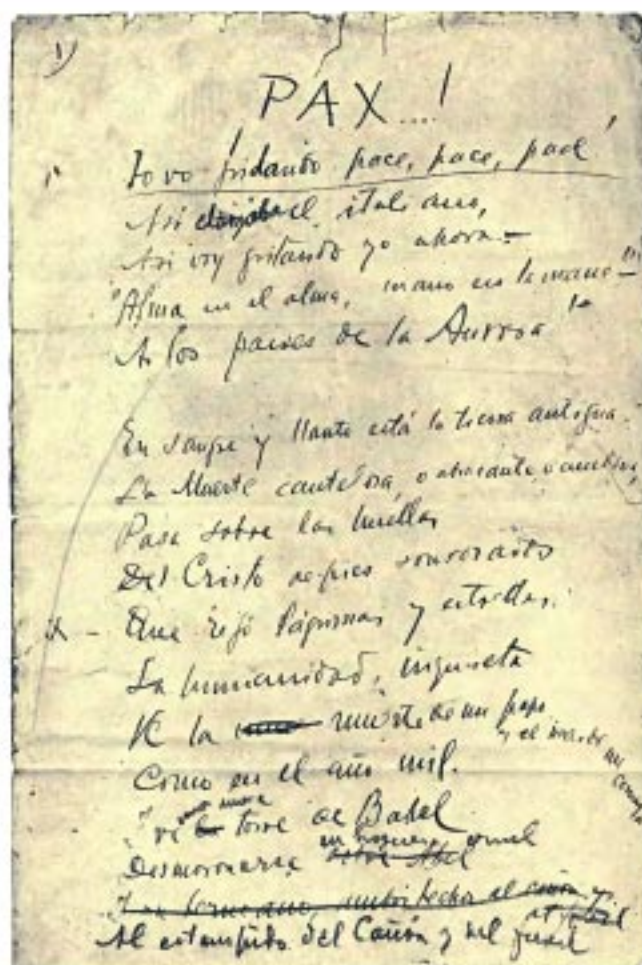 1)
PAX....!
Io vo gridando pace, pace, pace!
Así el italiano,
Así voy gritando yo ahora.—
"Alma en el alma, mano en la mano"—
A los países de la Aurora
En sangre y llanto está la tierra antigua.
La Muerte cautelosa, o abrasante, o ambigua,
Pasa sobre las huellas
Del Cristo de pies sonrosados
Que regó lágrimas y estrellas.
La humanidad, inquieta
Ve la muerte de un papa
y el nacer de un cometa
Como en el año mil.
Y ve una nueva torre de Babel
Desmoronarse en hoguera cruel
Al estampido del Cañón y del fusil